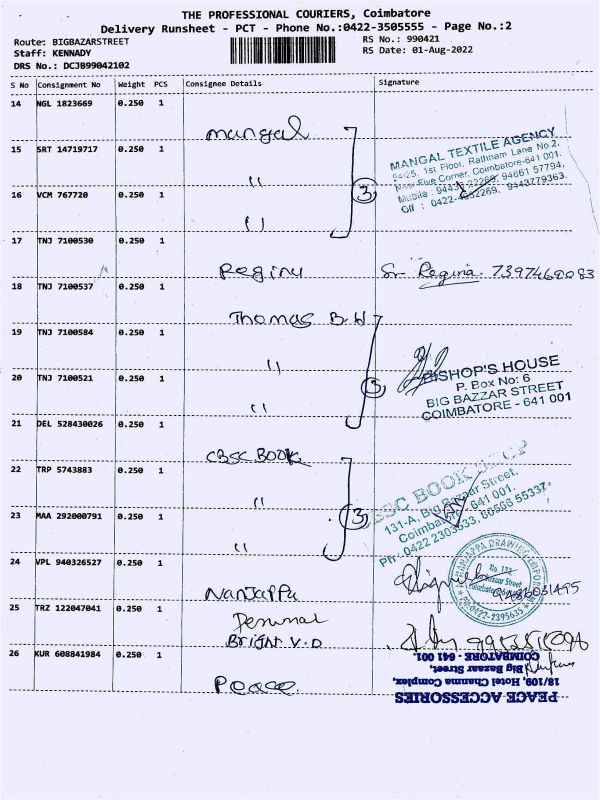 THE PROFESSIONAL COURIERS, Coimbatore
Delivery Runsheet - PCT - Phone No.:0422-3505555 - Page No.:2
Route: BIGBAZARSTREET
RS No.: 990421
Staff: KENNADY
RS Date: 01-Aug-2022
DRS No.: DCJB99042102
S No Consignment No Weight PCS Consignee Details Signature
14 NGL 1823669 0.250 1
mangal
15 SRT 14719717 0.250 1
"
16 VCM 767720 0.250 1
"
3
MANGAL TEXTILE AGENCY
94/25, 1st Floor, Rathnam Lane No.2,
Near Five Corner, Coimbatore-641 001.
Mobile : 94433-22269, 94861 57794,
Off : 0422-4952269, 9443779363.
17 TNJ 7100530 0.250 1
Regina
Sr Regina 7397460083
18 TNJ 7100537 0.250 1
Thomas B.H
19 TNJ 7100584 0.250 1
"
20 TNJ 7100521 0.250 1
"
3
BISHOP'S HOUSE
P. Box No: 6
BIG BAZZAR STREET
COIMBATORE - 641 001
21 DEL 528430026 0.250 1
CBSC BOOK
22 TRP 5743883 0.250 1
"
23 MAA 292000791 0.250 1
"
3
CBSC BOOK SHOP
131-A, Big Bazaar Street,
Coimbatore - 641 001.
Ph : 0422-2303533, 80566 55337
24 VPL 940326527 0.250 1
Nanjappa
NANJAPPA DRAWING EMPORIUM
Bazaar Street,
Ph:0422-2395635
25 TRZ 122047041 0.250 1
Perumal
Bright V.D
26 KUR 608841984 0.250 1
Peace
PEACE ACCESSORIES
18/109, Hotel Channma Complex,
Big Bazaar Street,
COIMBATORE - 641 001.